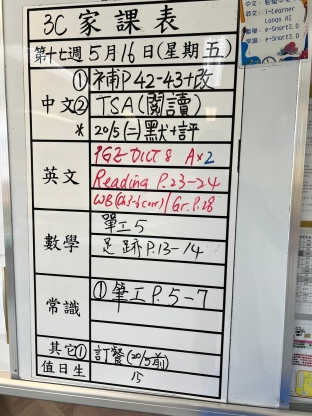 3C 家課表
第十七週 5月16日(星期五)
中文 ① 補P42-43+改
② TSA(閱讀)
* 20/5(二)默+評
英文 PGE DICT 8 A×2
Reading P.23-24
WB(Ch3-6 corr)/Gr.P.28
數學 單工5
足跡P.13-14
常識 ① 筆工P.5-7
其它① 訂餐(20/5前)
值日生 15
i-Learner
Longo AI
e-Smart2.0
e-Smart2.0